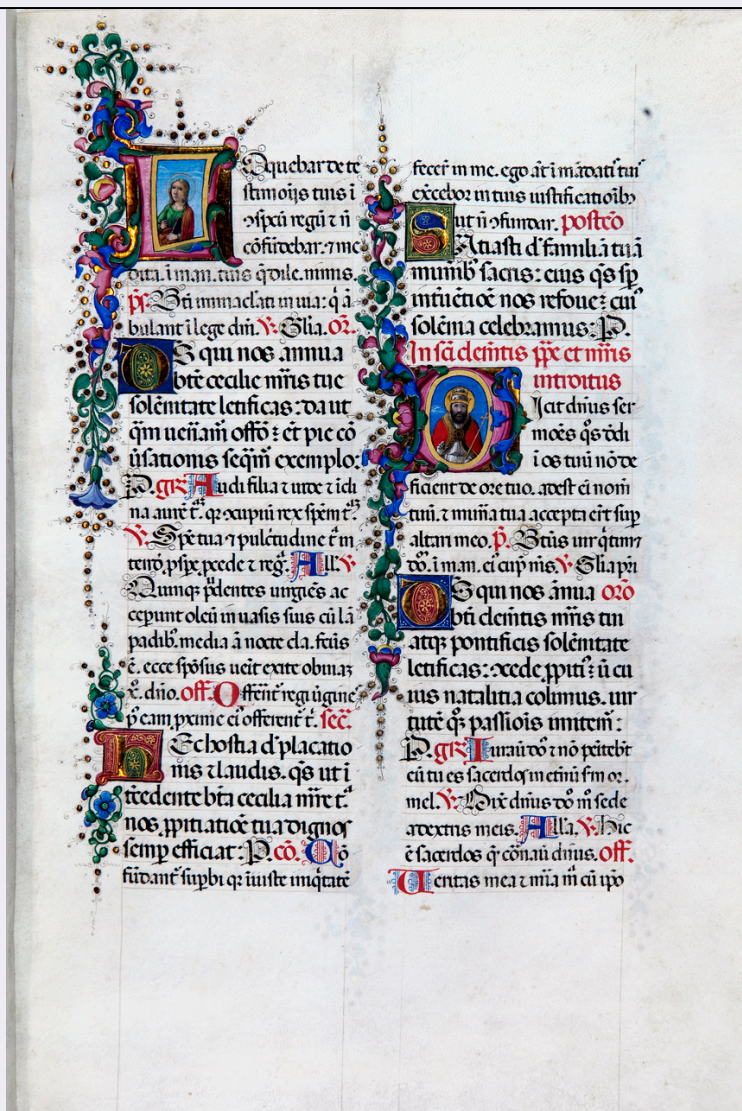 Loquebar de te
stimoijs tuis ī
ↄspcū regū ⁊ nō
cōfūdebar. ⁊ me
dita. ī man. tuis q̄ dile. nimis.
p̄s. Bti immaclati in uia: q̄ ā
bulant ī lege dn̄i. V. Glia. Or̄.
DS qui nos annua
btē cecilie mr̄is tue
solēnitate letificas: da ut
q̄m uenam̄ offō: ēt pie cō
ūsationis seq̄m̄ exemplo.
P. gr̄ Audi filia ⁊ uide ⁊ īcli
na aurē t. qꝛ ↄcupiū rex spēm t.
V. Spē tua ⁊ pulc̄tudine t. in
tend, pspe, pcede ⁊ reg. All. V.
Quinqꝫ p̄dentes uirgīes ac
ceperunt oleū in uasis suis cū lā
padibꝫ. media ā nocte cla. fctūs
ē. ecce spōsus ueīt exite obuiaꝫ
x. dn̄o. off. Offent̄ regi ūgines
p̄ eam pxime eī offerent t. sec.
HEc hostia d̄ placatio
nis ⁊ laudis. qs̄ ut ī
tcedente btā cecilia mr̄e t.
nos, ppitiatiōe tua dignos
semp efficiat: P. cō. Cō
fūdant̄ supbi qꝛ iniuste iniq̄tatē
fecer̄ in me. ego āt ī mādatis tuis
excebor in tuis iustificatiōibꝫ
ut nō ↄfundar. postcō
SAtiasti d̄ familiā tuā
munibꝫ sacris: eius qs̄ sp̄
int̄uētiōe nos refoue: cuiꝰ
solēnia celebramus: P.
In sc̄i clemētis ppe et mr̄is
introitus
Dicit dn̄us ser
mōes qs̄ dedi
ī os tuū nō de
ficient de ore tuo. adest eī nom̄
tuū. ⁊ mun̄a tua accepta er̄t sup
altare meo. p̄. Btus uir q̄ tim̄
dō. ī man. eī cup nis. V. Glia pri
DS qui nos ānua orō
bti clemtis mr̄is tui
atqꝫ pontificis solēnitate
letificas: ↄcede, ppitiꝰ ū cu
ius natalitia colimus. uir
tutē qꝫ passiōis imitem̄:
P. gr̄ Iurauī dō ⁊ nō peītebt
eū tu es sacerdos in etnū sm̄ or.
mel. V. Dix̄ dn̄us dō m̄ sede
adextris meis. Alla. V. Hic
ē sacerdos q̄ coronaū dn̄us. off.
Ueritas mea ⁊ mīa m̄ cū ip̄o